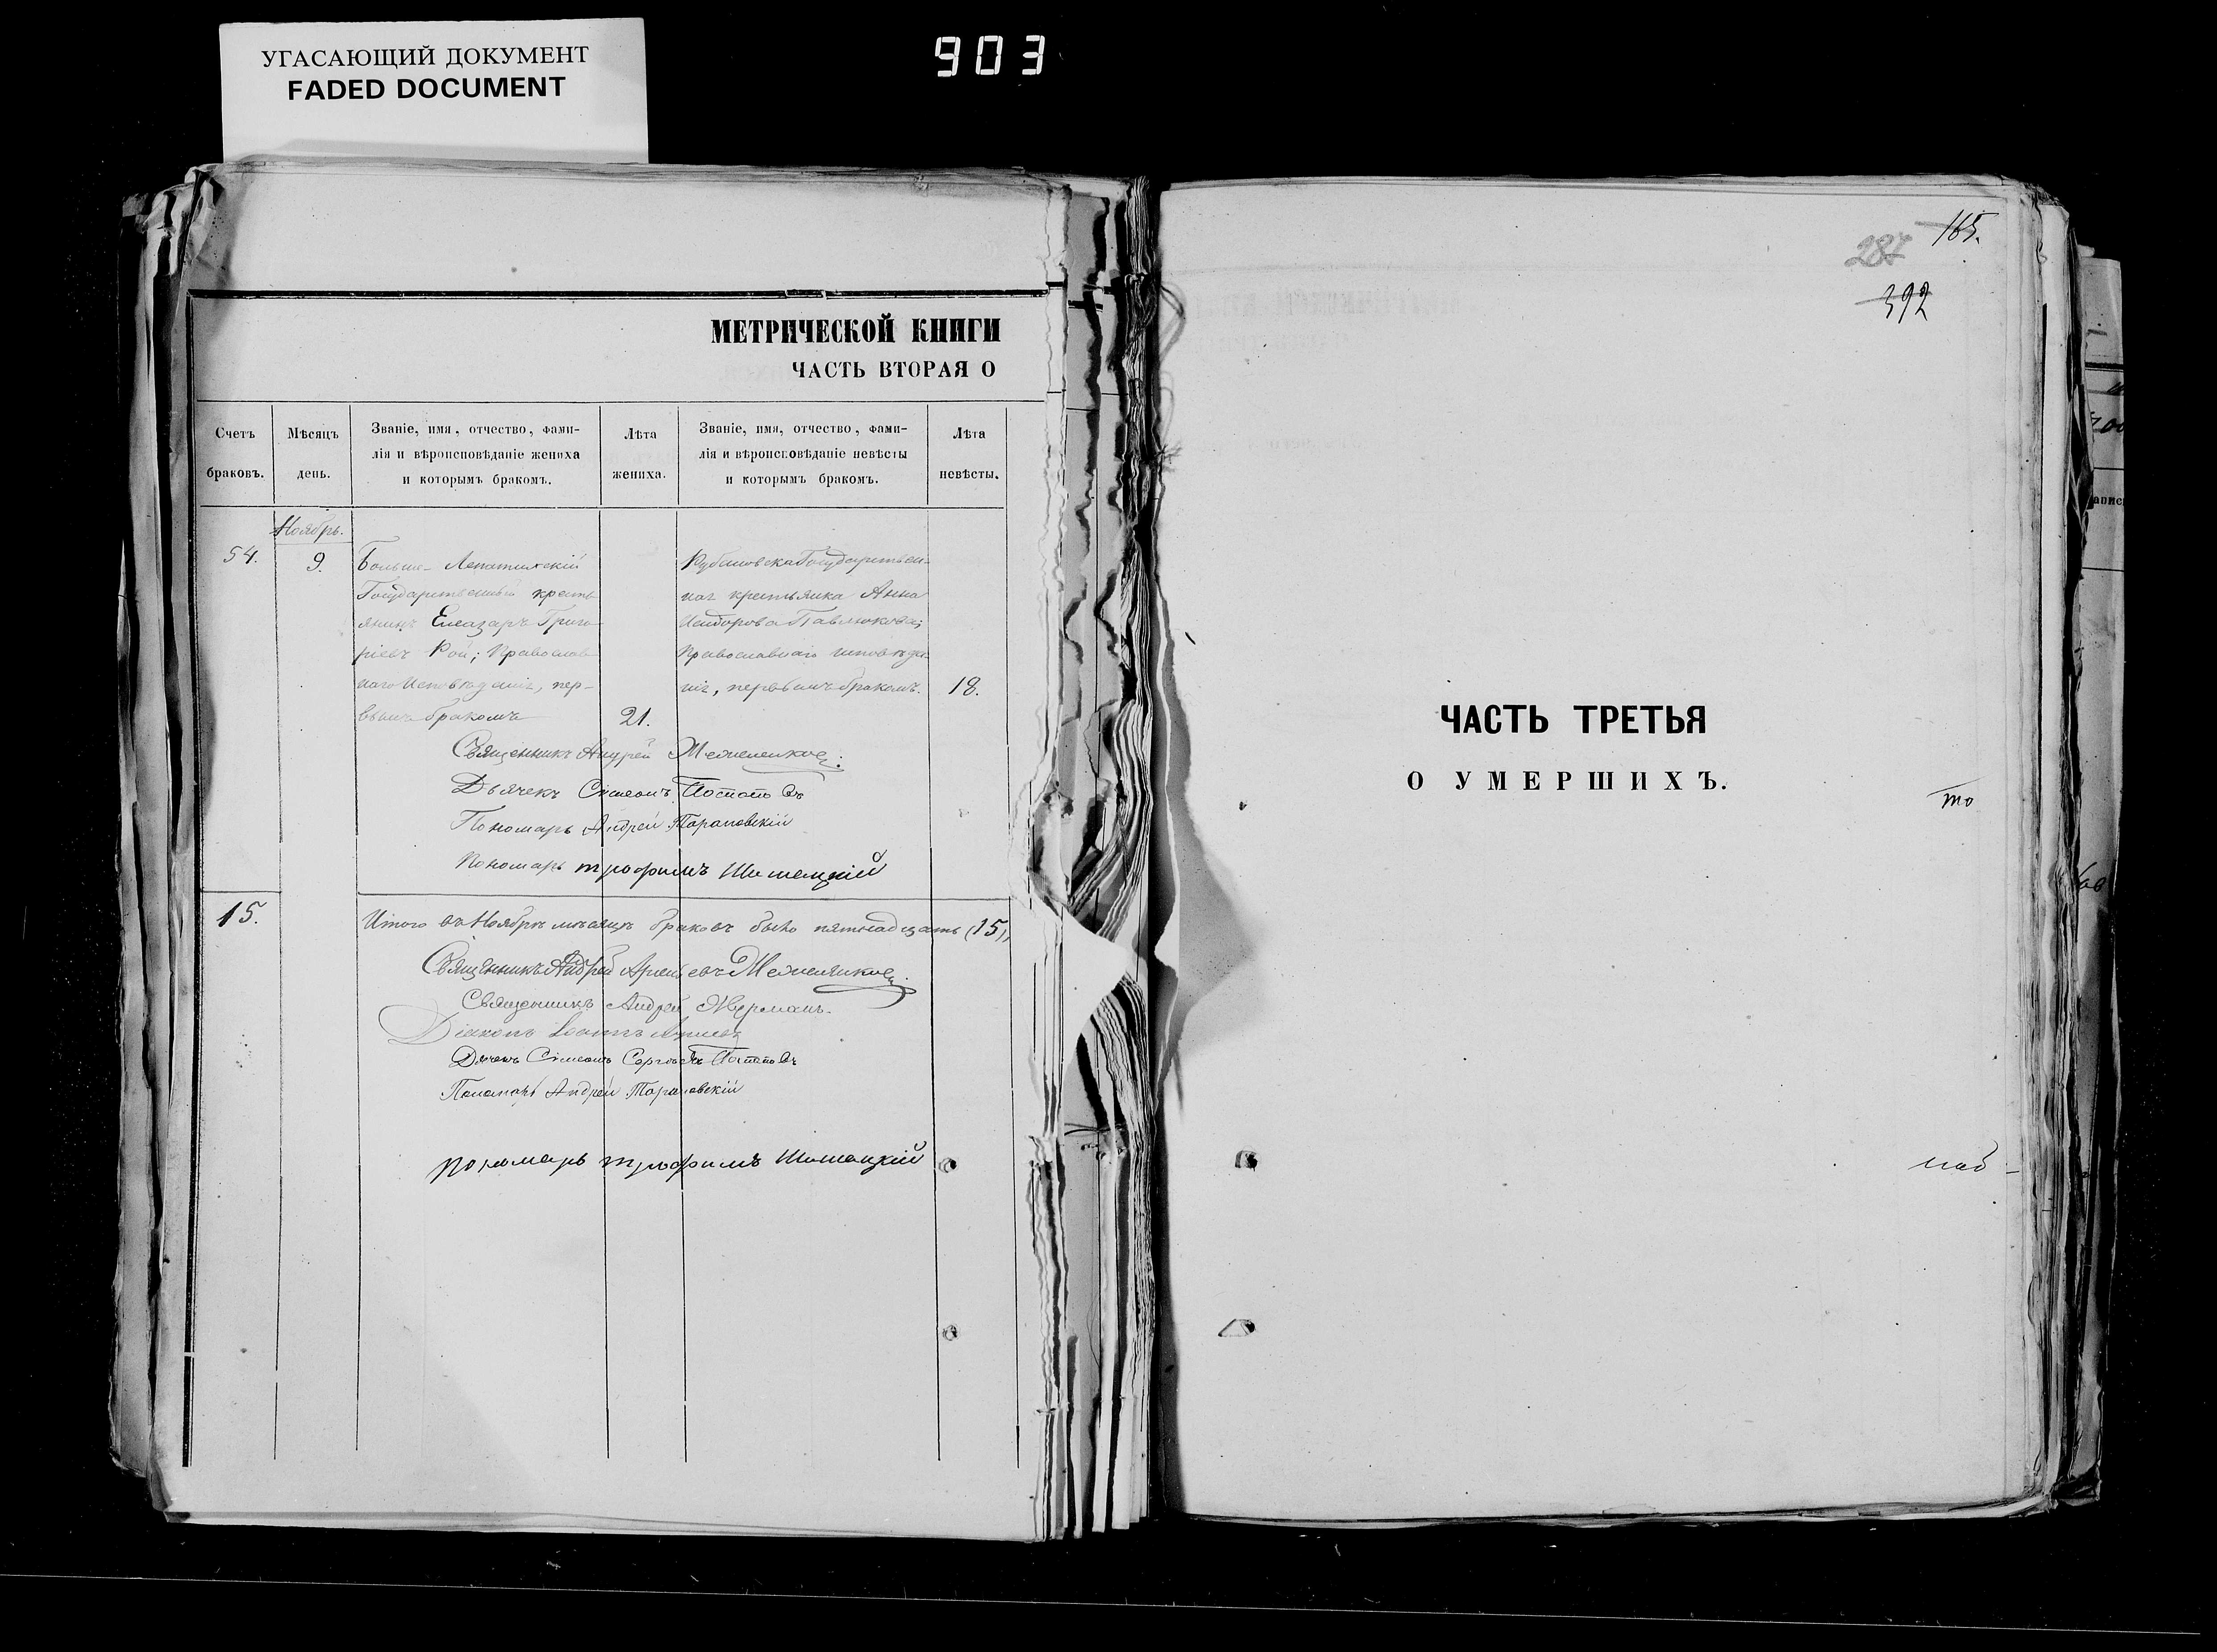 УГАСАЮЩИЙ ДОКУМЕНТ
FADED DOCUMENT
903
МЕТРИЧЕСКОЙ КНИГИ
ЧАСТЬ ВТОРАЯ О
Счетъ
браковъ.
Мѣсяцъ
день.
Званіе, имя, отчество, фами-
лія и вѣроисповѣданіе жениха
и которымъ бракомъ.
Лѣта
жениха.
Званіе, имя, отчество, фами-
лія и вѣроисповѣданіе невѣсты
и которымъ бракомъ.
Лѣта
невѣсты.
Ноябрь.
54.
9.
Больше-Лепатихскій
Государственный кресть
янинъ Елеазаръ Григо
ріевъ Рой; Православ
наго Исповѣданія, пер-
вымъ бракомъ
21.
Рубановска Государствен-
ная крестьянка Анна
Исидорова Павлюкова;
Православнаго исповѣда-
нія, первымъ бракомъ.
18.
Священникъ Андрей
Дьячекъ Симеонъ
Пономарь Андрей Тарановскій
Пономарь трофимъ Шишацкій
15.
Итого въ Ноябрѣ мѣсяцѣ браковъ было пятнадцать (15),
Священникъ Андрей
Священникъ Андрей
Діаконъ Іоаннъ
Дьячекъ Симеонъ
Пономарь Андрей Тарановскій
пономарь трофимъ Шишацкій
165.
287
392
ЧАСТЬ ТРЕТЬЯ
О УМЕРШИХЪ.
то